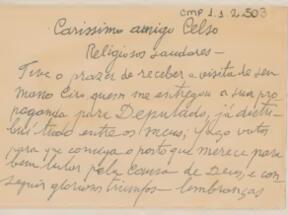 CMP 1.1.2.503
Carissimo amigo Celso
Religiosos saudares -
Tive o prazer de receber a visita de seu
mano Ciro, quem me entregou a sua pro
paganda para Deputado, já distri-
bui tudo entre os meus, faço votos
para que consiga o posto que merece para
bem lutar pela Causa de Deus, e con
seguir gloriosos triunfos - lembranças